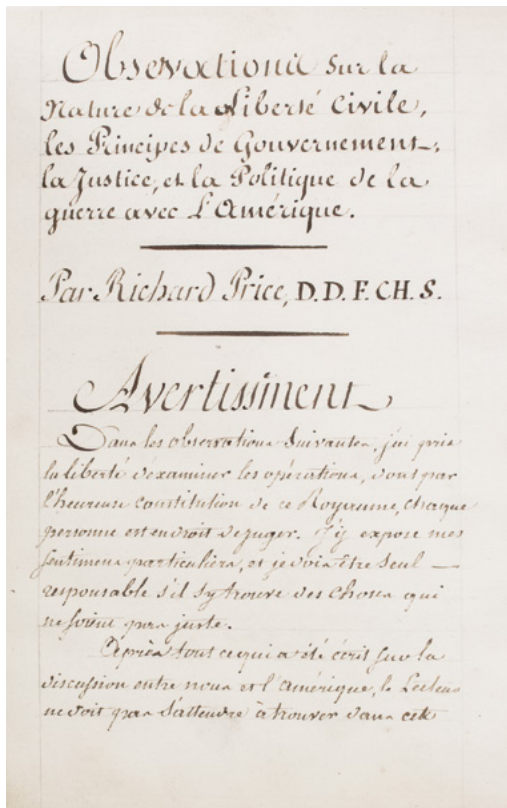 Observations sur la
Nature de la Liberté Civile,
les Principes de Gouvernement,
la Justice, et la Politique de la
guerre avec L'Amérique.
Par Richard Price, D. D. F. CH. S.
Avertissment
Dans les observations suivantes, j'ai pris
la liberté d'examiner les opérations, dont par
l'heureuse constitution de ce Royaume, chaque
personne est en droit de juger. J'y expose mes
sentimens particuliers, et je dois être seul —
responsable s'il s'y trouve des choses qui
ne soient pas juste.
Après tout ce qui a été écrit sur la
discussion entre nous et l'amérique, le Lecteur
ne doit pas s'attendre à trouver dans cet